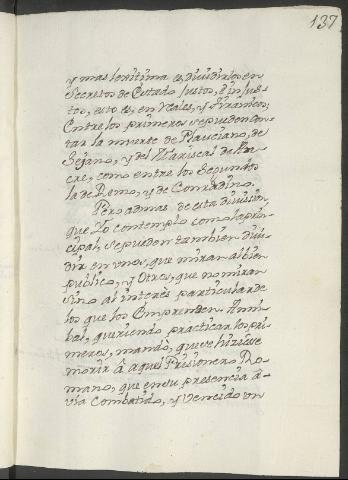 137
y mas lexitima es, dividirlos en
Secretos de Estado Justos, è injus-
tos, esto es, en Reales, y Tiranicos;
Entre los primeros se pueden con-
tar la muerte de Plauciano, de
Sejano, y del Mariscal de An-
cre, como entre los Segundos
la de Remo, y de Conradino.
Pero ademas de esta division,
que Yo contemplo como la prin-
cipal, se pueden tambien divi-
dir en unos, que miran al bien
publico, y Otros, que no miran
sino al interès particular de
los que los Emprenden. Anni-
bal, queriendo practicar los pri-
meros, mandò, que se hiziese
morir â aquel Prisionero Ro-
mano, que en su presencia â-
via Combatido, y Vencido un